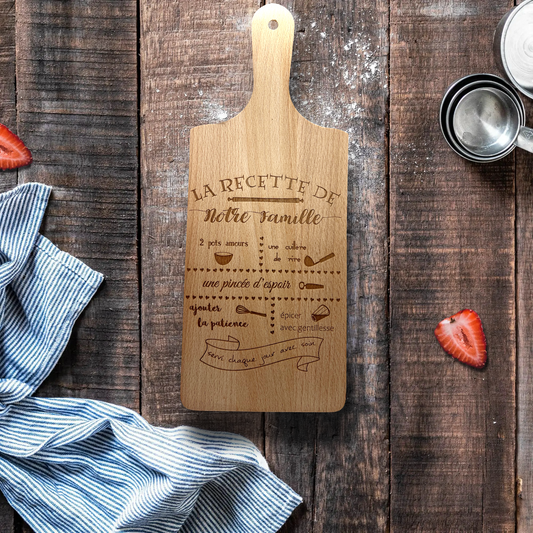 LA RECETTE DE
Notre Famille
2 pots amours
une cuillère
de rire
une pincée d'espoir
ajouter
la patience
épicer
avec gentillesse
servi chaque jour avec soin